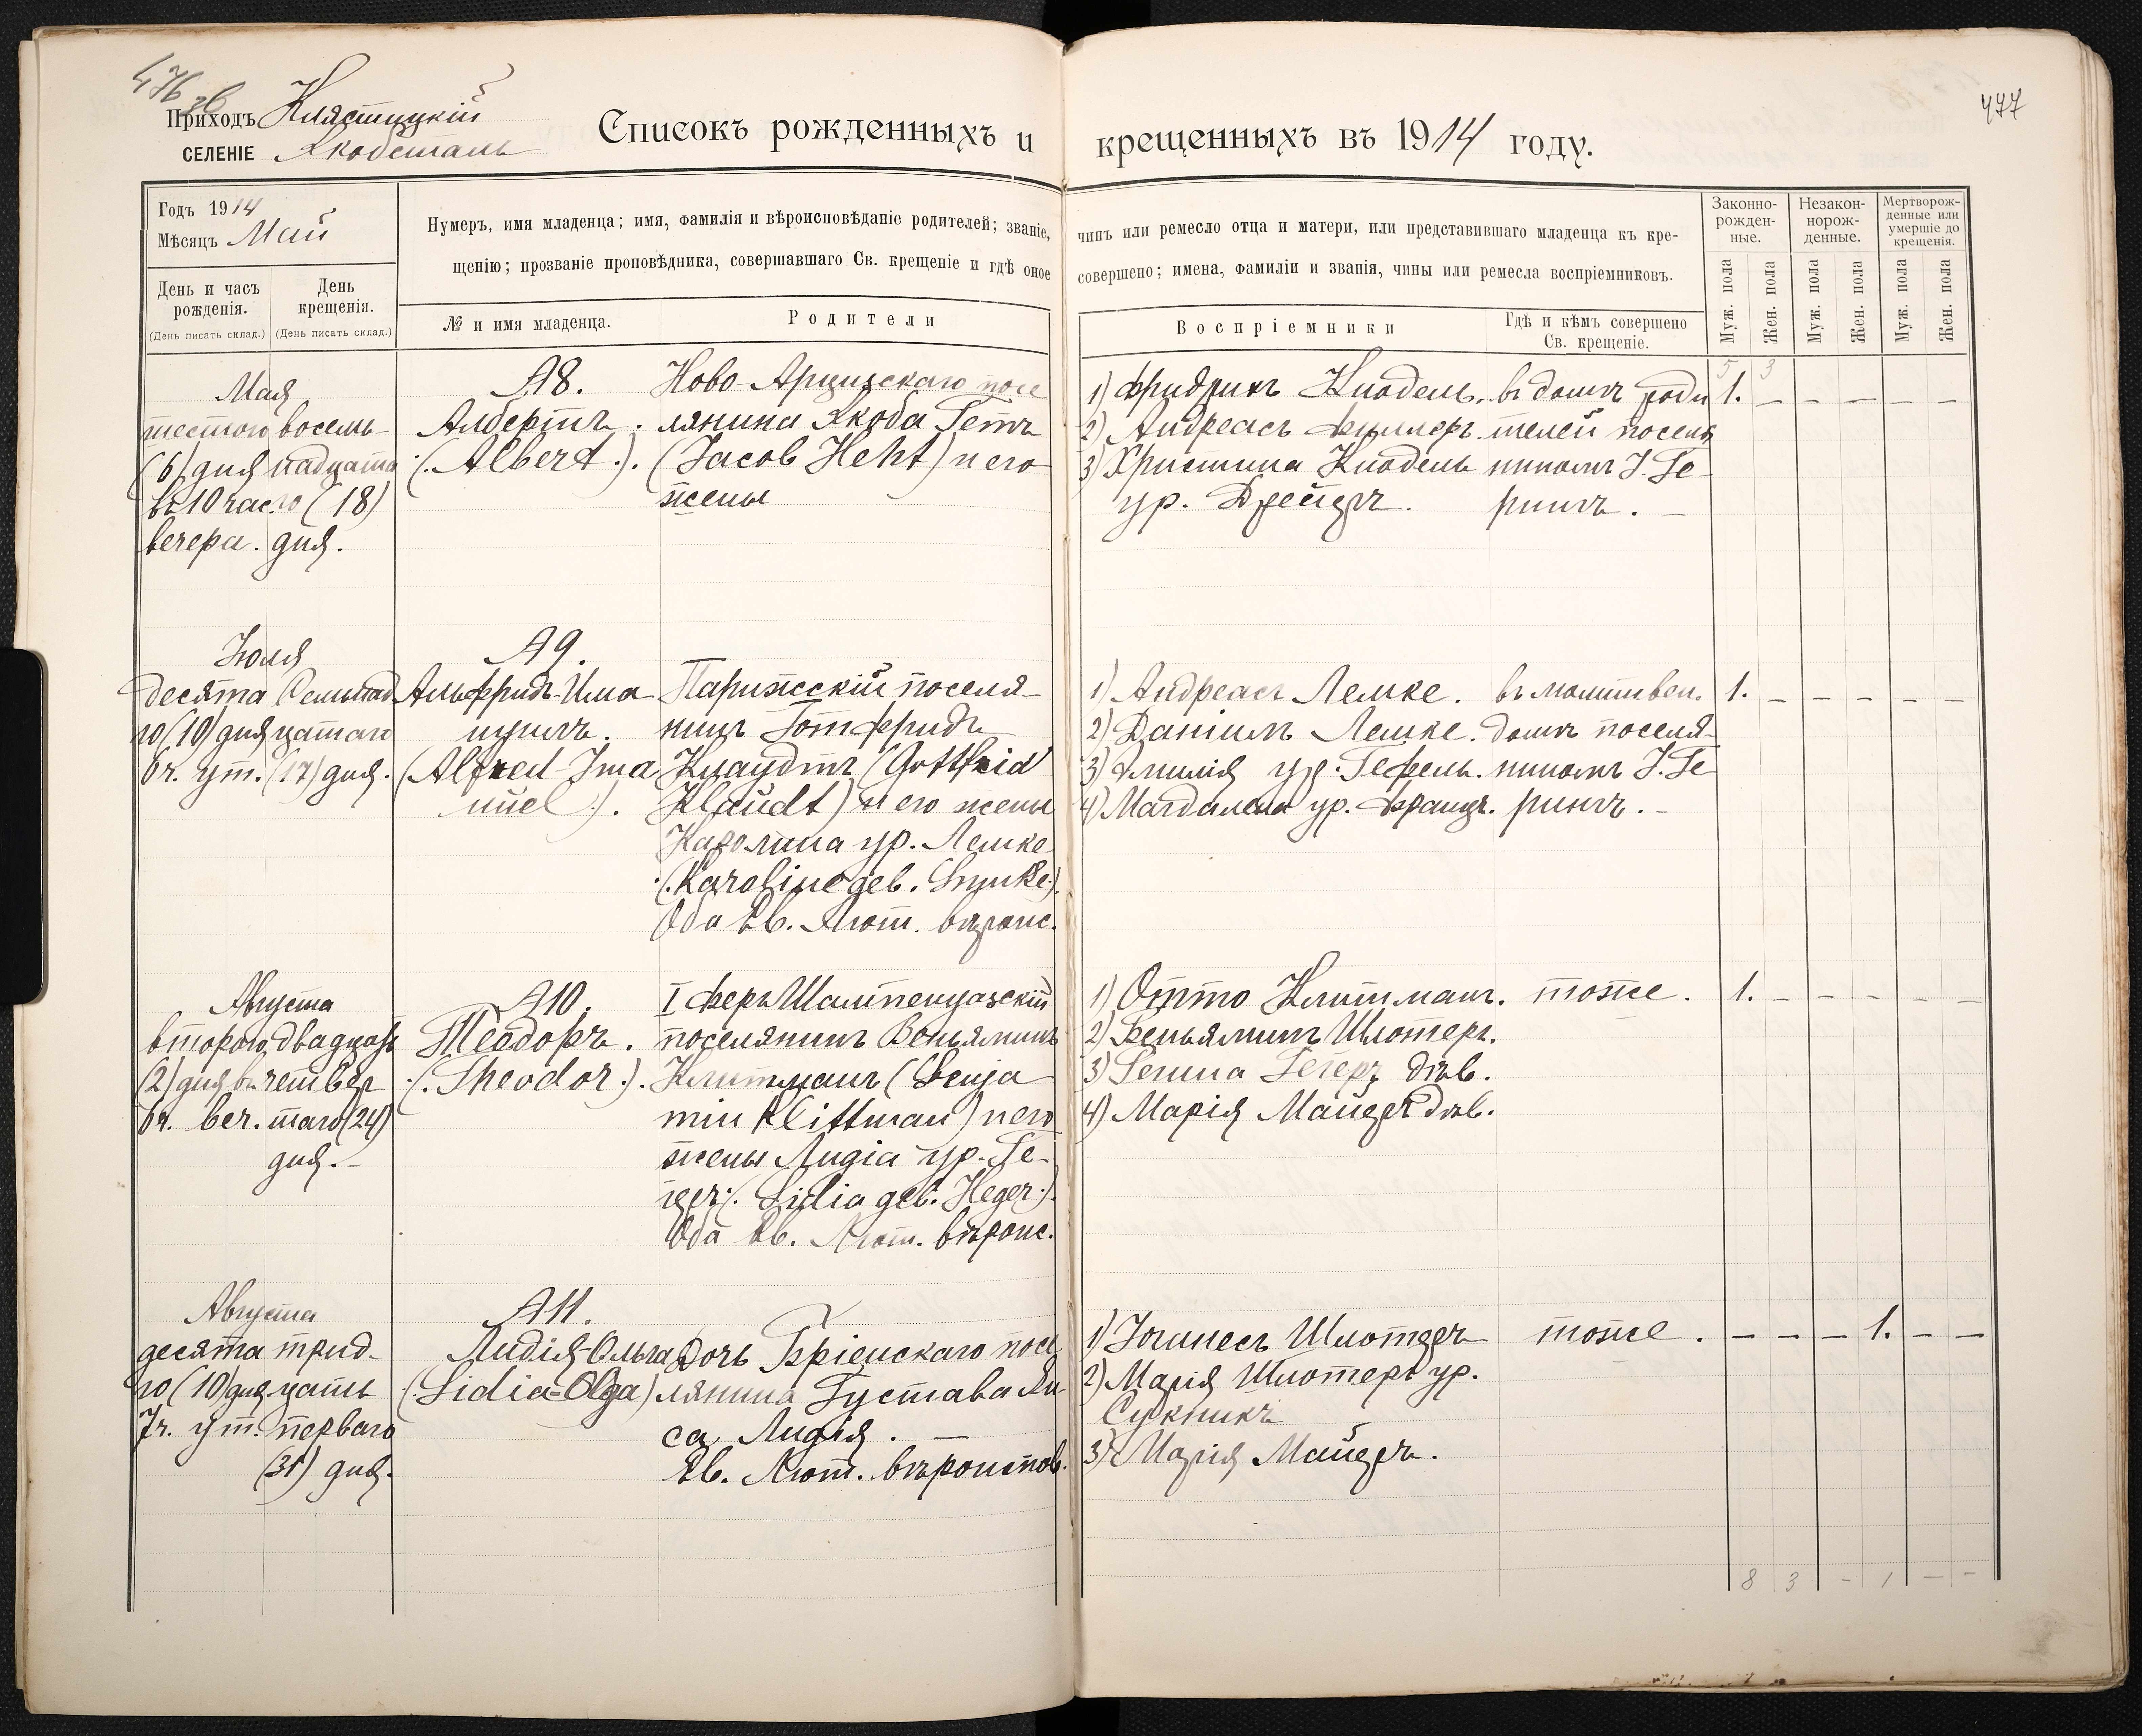 476 об
477
Приходъ Клястицкій
СЕЛЕНІЕ Якобсталь
Списокъ рожденныхъ и крещенныхъ въ 1914 году.
Годъ 1914
Мѣсяцъ Май
День и часъ рожденія.
(День писать склад.)
День крещенія.
(День писать склад.)
Нумеръ, имя младенца; имя, фамилія и вѣроисповѣданіе родителей; званіе, чинъ или ремесло отца и матери, или представившаго младенца къ кре-
щенію; прозваніе проповѣдника, совершавшаго Св. крещеніе и гдѣ оное совершено; имена, фамиліи и званія, чины или ремесла воспріемниковъ.
№ и имя младенца.
Родители
Воспріемники
Гдѣ и кѣмъ совершено
Св. крещеніе.
Законно-
рожден-
ные.
Незакон-
норож-
денные.
Мертворож-
денные или
умершіе до
крещенія.
Муж. пола
Жен. пола
Муж. пола
Жен. пола
Муж. пола
Жен. пола
5 3
Мая
шестого
(6) дня
въ 10 час.
вечера.
восемь-
надцата
го (18)
дня.
А8.
Алберть.
(Albert).
Ново-Арцизскаго посе
лянина Якоба Гетъ
(Jacob Heht) и его
жены
1) Фридрихъ Кнодель.
2) Андреасъ
3) Христина Кнодель
ур. Дрейеръ.
въ домѣ роди
телей поселя
ниномъ J. Ге-
рингъ. -
1. - - - - -
Іюля
десята
го (10) дня
6ч. ут.
Семнад
цатаго
(17) дня.
А9.
Альфридъ-Има
нуилъ.
(Alfred-Ima
nuel).
Парижскій поселя-
нинъ Готфридъ
Клаудтъ (Gottfrid
Klaudt) и его жены
Каролина ур. Лемке
(Karoline geb. Lemke).
Оба Ев. Лют. вѣроис.
1) Андреасъ Лемке.
2) Даніилъ Лемке.
3) Эмилія ур. Гефель.
4) Магдалена ур. Францъ.
въ молитвен.
домѣ поселя-
ниномъ J. Ге
рингъ. -
1. - - - - -
Августа
второго
(2) дня въ
6ч. веч.
двадцать
четвер
таго (24)
дня. -
А10.
Теодоръ.
(Theodor).
I Феръ Шампенуазскій
поселянинъ Веньяминъ
Клитманъ (Benja
min Klittman) и его
жены Лидіа ур. Ге-
геръ (Lidia geb. Heger).
Оба Ев. Лют. вѣроис.
1) Отто Клитманъ.
2) Беньяминъ Шлотеръ.
3) Гегеръ дѣв.
4) Марія Майеръ дѣв.
тоже.
1. - - - - -
Августа
десята
го (10) дня
7ч. ут.
трид-
цать
перваго
(31) дня.
А11.
Лидія-Ольга
(Lidia-Olga)
Дочь Бріенскаго посе
лянина Густава Ян
са Лидія. -
Ев. Лют. вѣроиспов.
1) Іоганесъ Шлотеръ
2) Марія Шлотеръ ур.
Сукникъ
3) Марія Майеръ.
тоже.
- - - 1. - -
8 3 - 1 - -